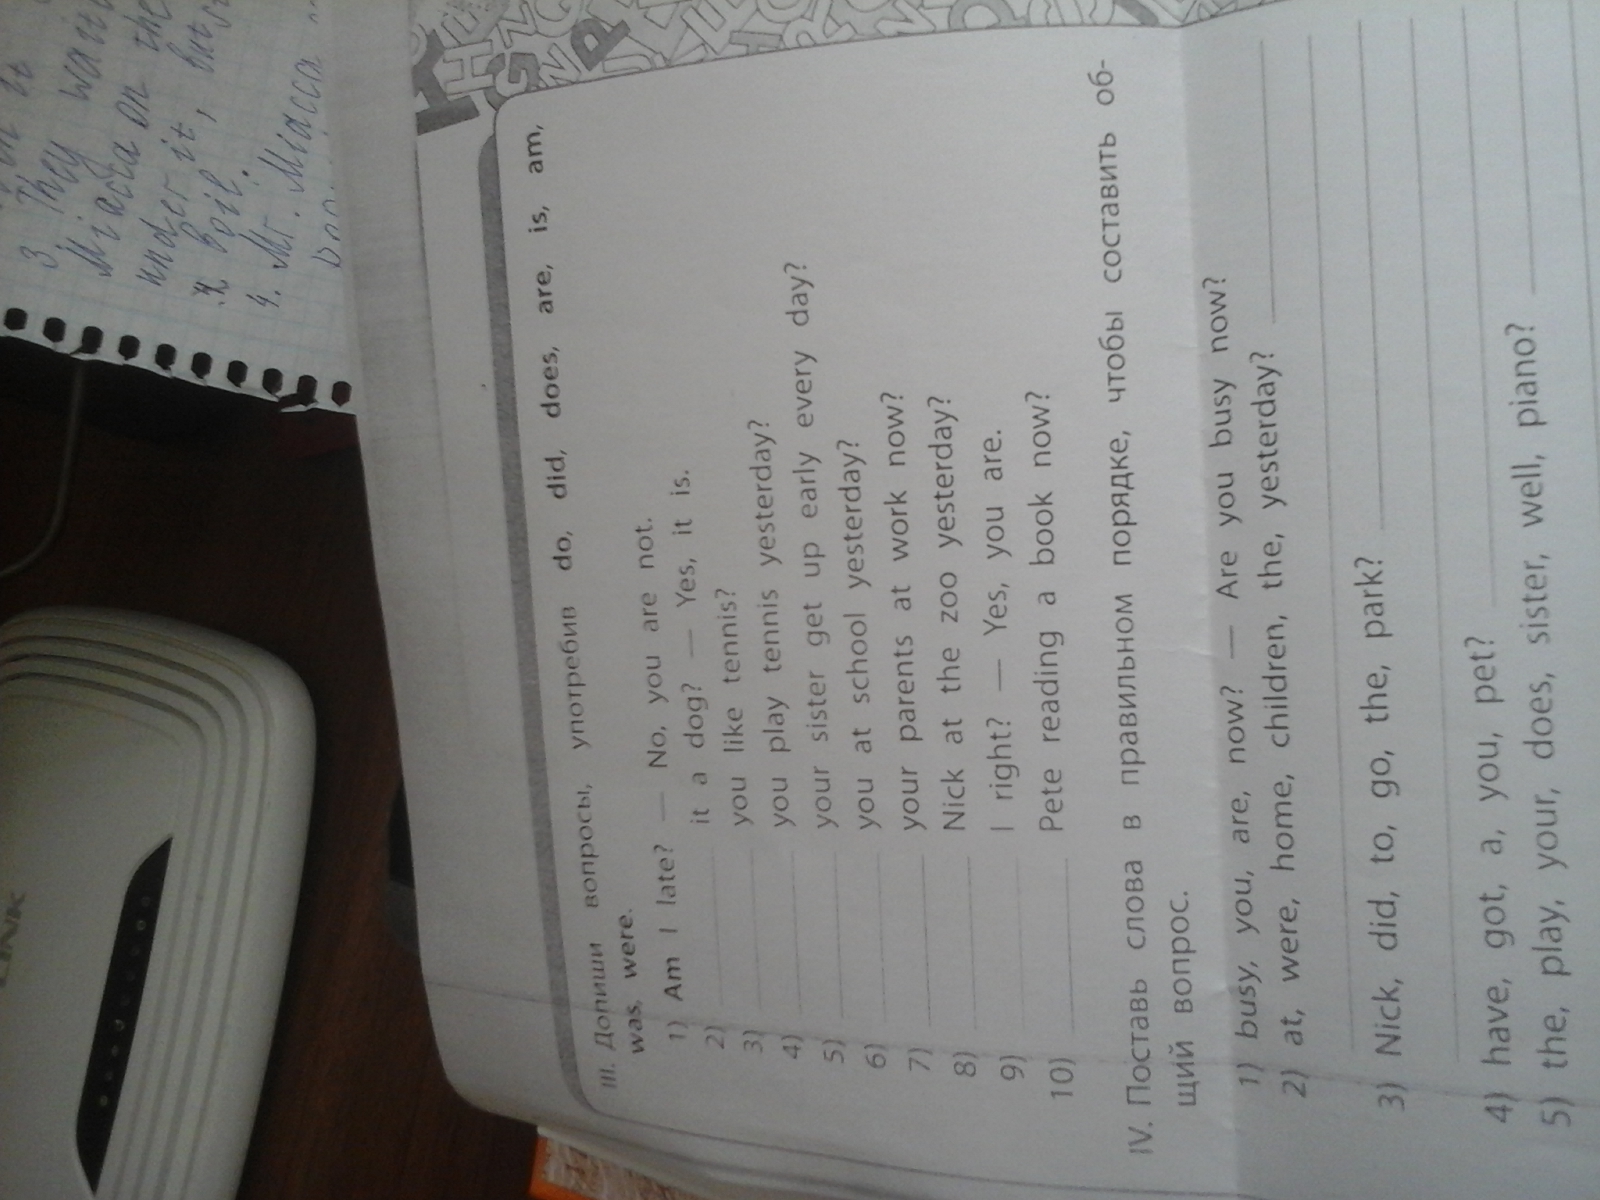 3 They
Miacca on the
under it, but
boil.
4. Mr. Miacca
LINK
III. Допиши вопросы, употребив do, did, does, are, is, am,
was, were.
1) Am I late? — No, you are not.
2) it a dog? — Yes, it is.
3) you like tennis?
4) you play tennis yesterday?
5) your sister get up early every day?
6) you at school yesterday?
7) your parents at work now?
8) Nick at the zoo yesterday?
9) I right? — Yes, you are.
10) Pete reading a book now?
IV. Поставь слова в правильном порядке, чтобы составить об-
щий вопрос.
1) busy, you, are, now? — Are you busy now?
2) at, were, home, children, the, yesterday?
3) Nick, did, to, go, the, park?
4) have, got, a, you, pet?
5) the, play, your, does, sister, well, piano?